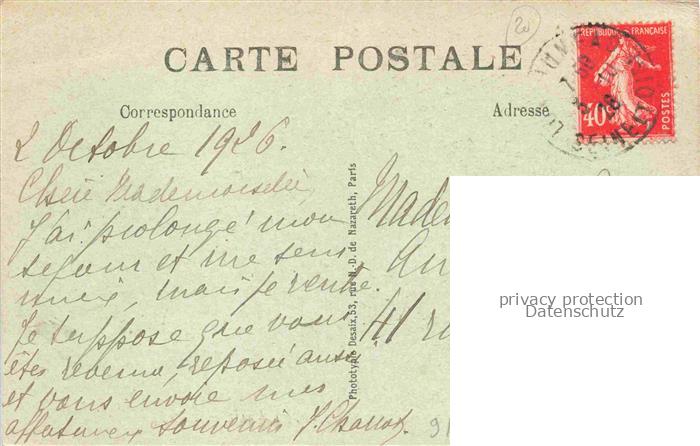 20
CARTE POSTALE
REPUBLIQUE FRANÇAISE
40c
POSTES
Correspondance
Adresse
2 Octobre 1926.
Chère Mademoiselle,
J'ai prolongé mon
séjour et me sens
mieux, mais je rentre.
Je suppose que vous
êtes revenue, reposée aussi
et vous envoie mes
affectueux souvenirs
Phototypie Desaix, 53, rue N.-D. de Nazareth, Paris
41
privacy protection
Datenschutz